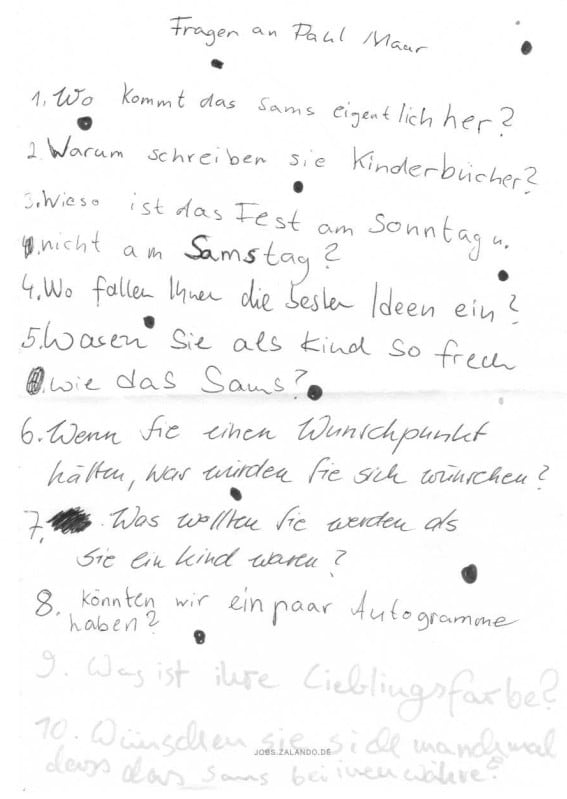 Fragen an Paul Maar
1. Wo kommt das Sams eigentlich her?
2. Warum schreiben sie Kinderbücher?
3. Wieso ist das Fest am Sonntag u.
nicht am Samstag?
4. Wo fallen Ihnen die besten Ideen ein?
5. Waren Sie als Kind so frech
wie das Sams?
6. Wenn Sie einen Wunschpunkt
hätten, was würden Sie sich wünschen?
7. Was wollten Sie werden als
Sie ein Kind waren?
8. Könnten wir ein paar Autogramme
haben?
9. Was ist ihre Lieblingsfarbe?
10. Wünschen sie sich manchmal
JOBS.ZALANDO.DE
dass das Sams bei inen währe?